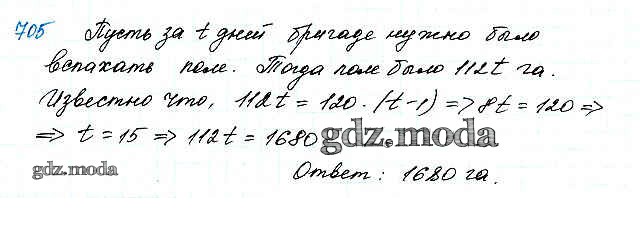 705 Пусть за t дней бригаде нужно было
вспахать поле. Тогда поле было 112t га.
Известно что, 112t = 120 · (t-1) => 8t = 120 =>
=> t = 15 => 112t = 1680
gdz.moda
gdz.moda
Ответ: 1680 га.